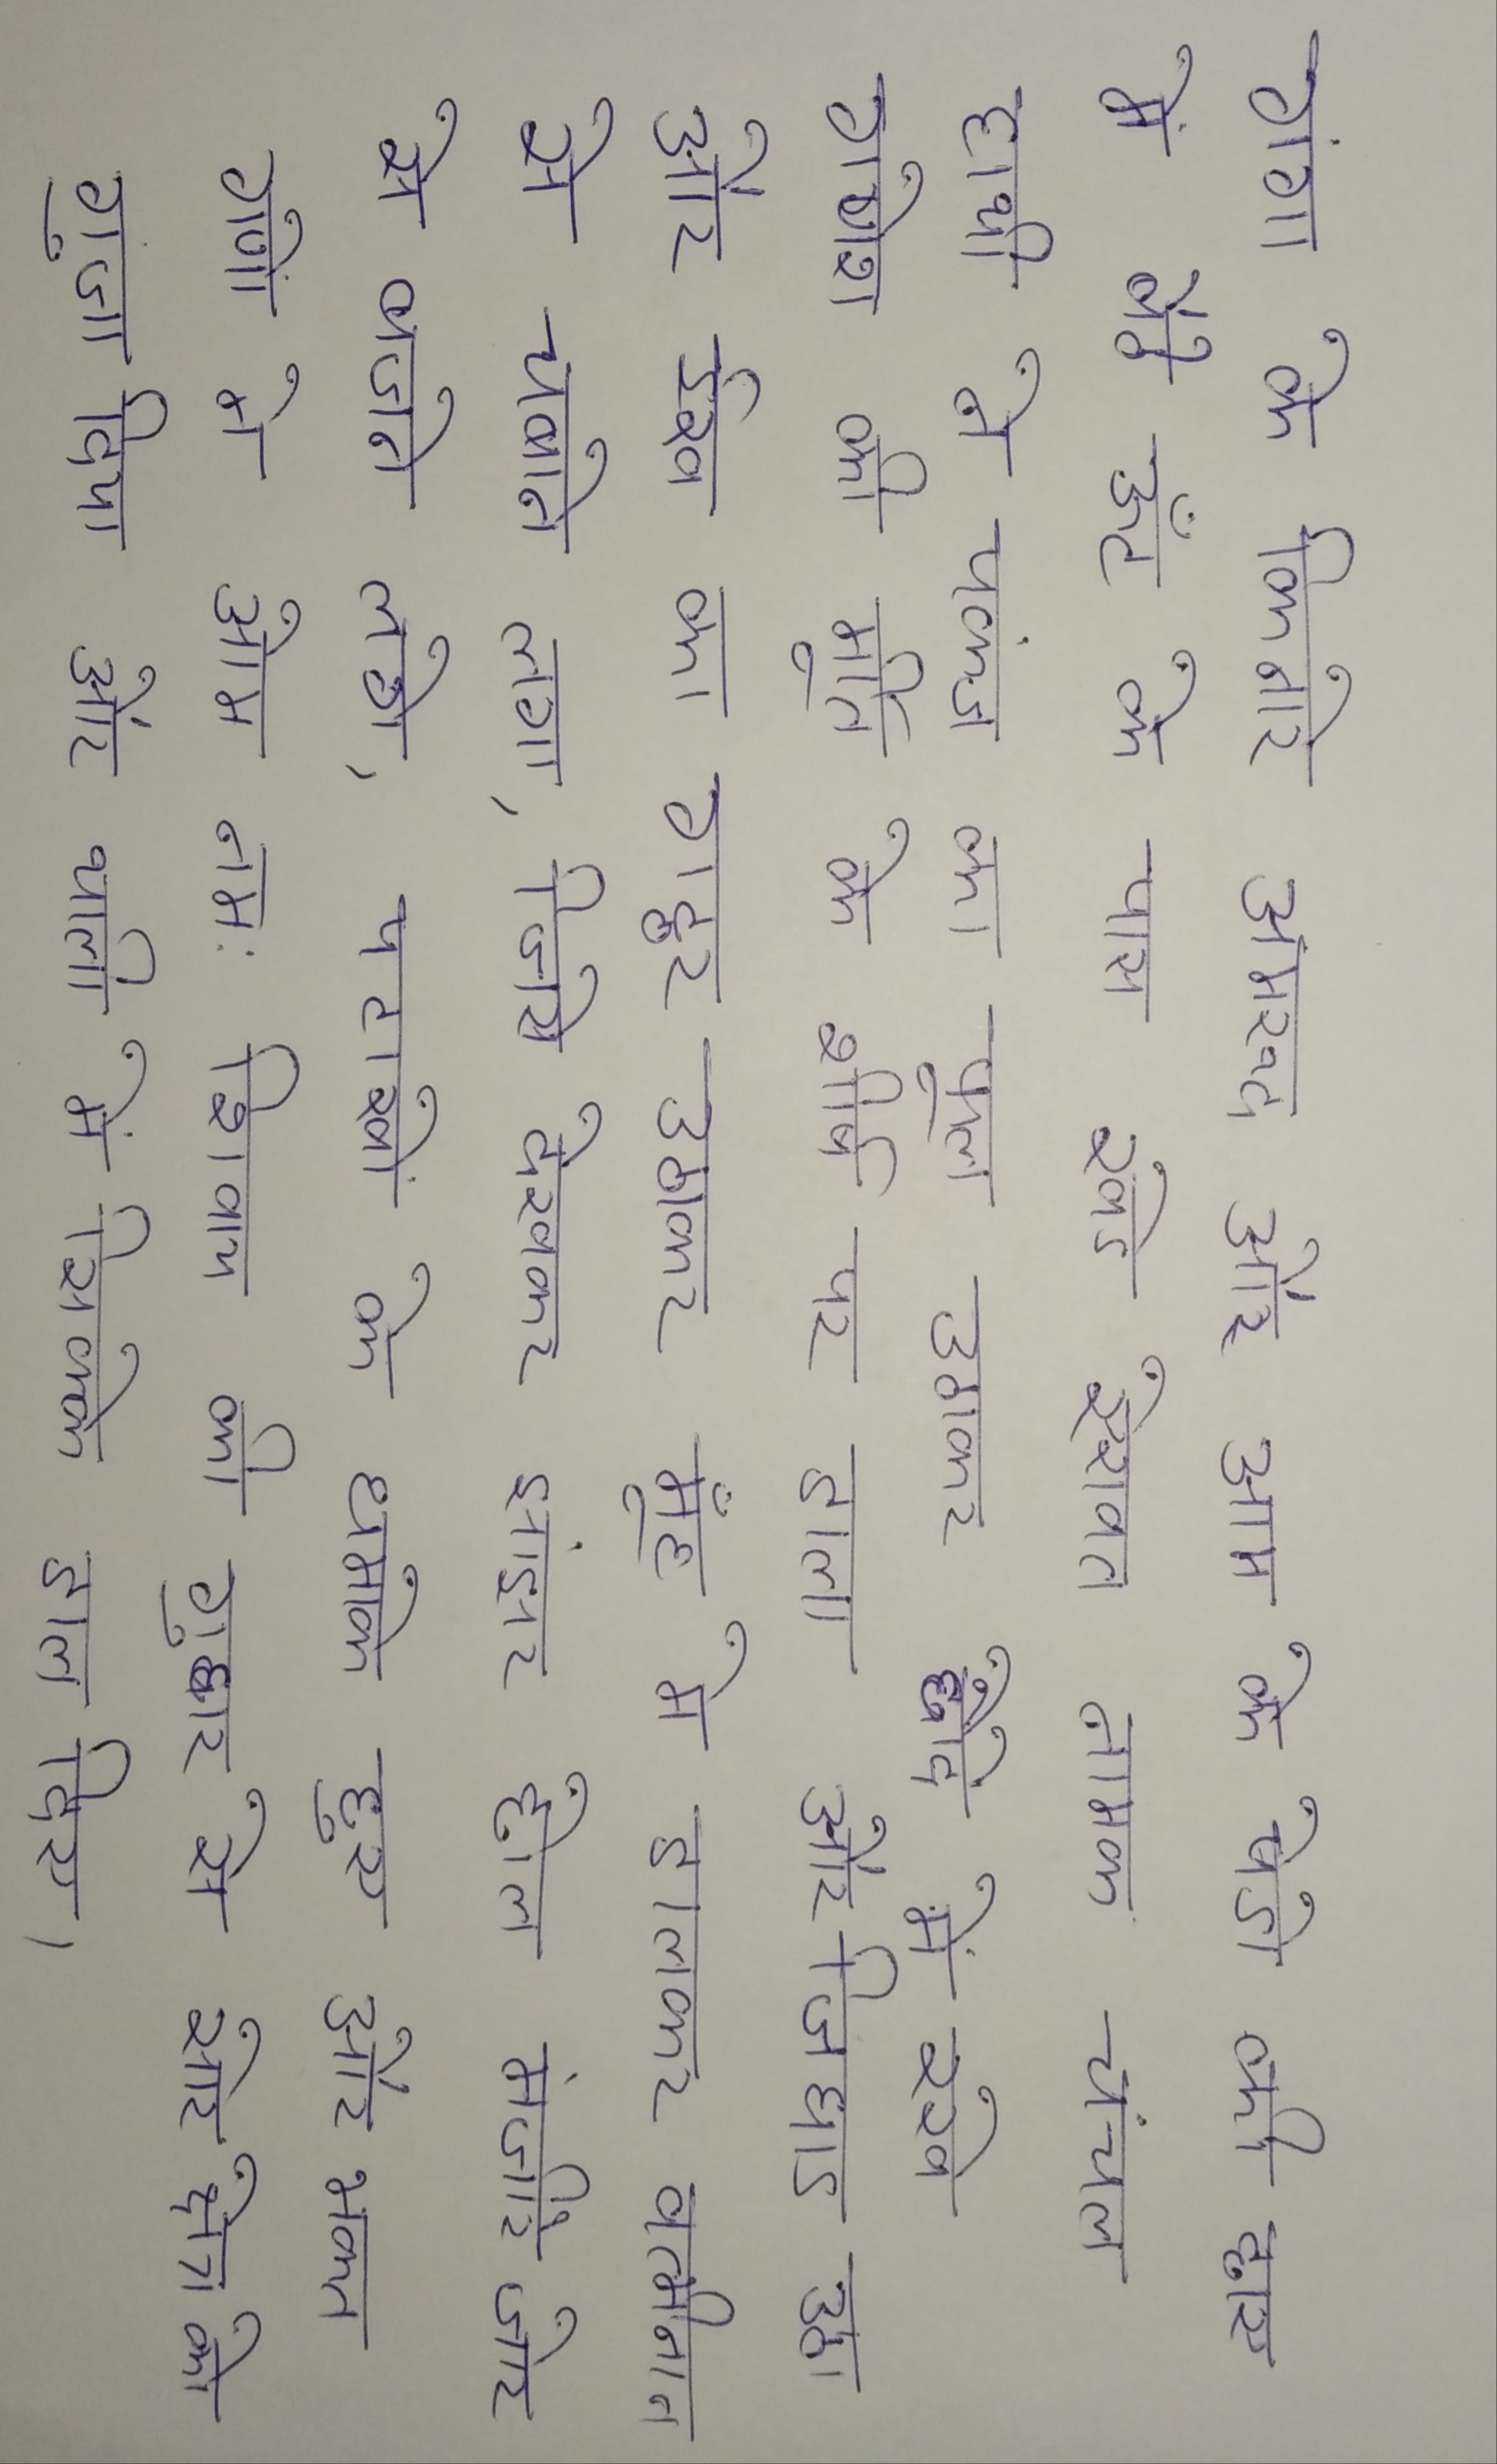 गंगा के किनारे अमरूद और आम के पेडो की छाए
में बैठे ऊँट के पास खडे ऐरावत नामक चंचल
हाथी ने पकंज का फूल उठाकर में रखे
गणेश की मूर्ति के शीर्ष पर डाला और जिघाड उठा
और ईख का गट्ठर उठाकर मूँह मे डालकर वत्मीनान
से चबाने लगा, जिसे देखकर झांझर ढोल मंजीरे जोर
से बजने लगे, पटाखों के धमाके हुए और भक्त
गणों ने ओम नम: शिवाय की से सारे क्षेत्र को
गुंजा दिया और थाली में सिक्के डाल दिए।